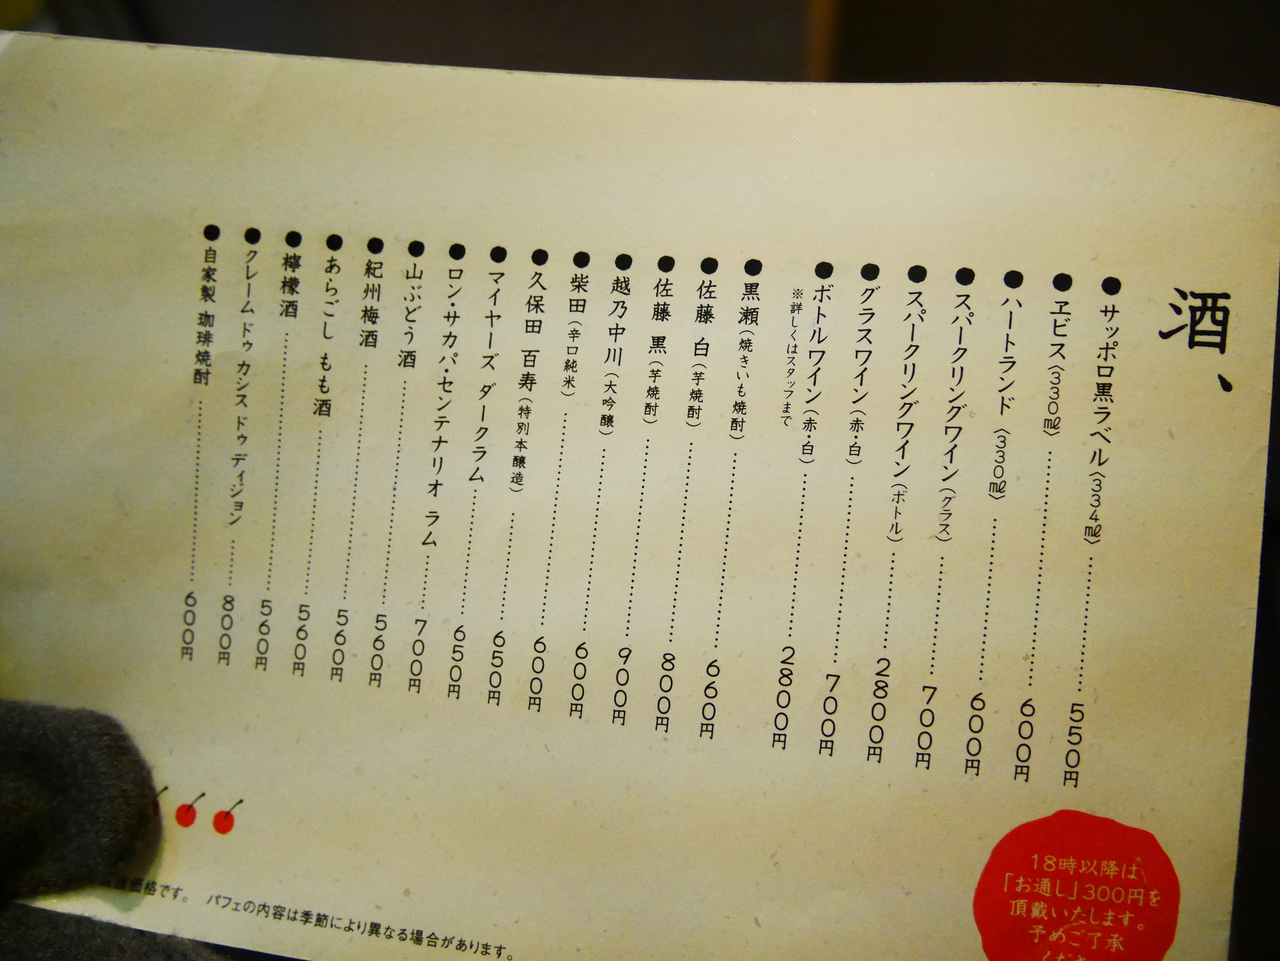 酒、
●サッポロ黒ラベル〈334㎖〉…………550円
●ヱビス〈330㎖〉…………600円
●ハートランド〈330㎖〉…………600円
●スパークリングワイン(グラス)…………700円
●スパークリングワイン(ボトル)…………2800円
●グラスワイン(赤・白)…………700円
●ボトルワイン(赤・白)…………2800円
※詳しくはスタッフまで
●黒瀬(焼きいも焼酎)…………660円
●佐藤 白(芋焼酎)…………800円
●佐藤 黒(芋焼酎)…………900円
●越乃中川(大吟醸)…………600円
●柴田(辛口純米)…………600円
●久保田 百寿(特別本醸造)…………650円
●マイヤーズ ダークラム…………650円
●ロン・サカパ・センテナリオ ラム…………700円
●山ぶどう酒…………560円
●紀州梅酒…………560円
●あらごし もも酒…………560円
●檸檬酒…………560円
●クレーム ドゥ カシス ドゥ ディジョン…………800円
●自家製 珈琲焼酎…………600円
18時以降は
「お通し」300円を
頂戴いたします。
予めご了承
価格です。 パフェの内容は季節により異なる場合があります。